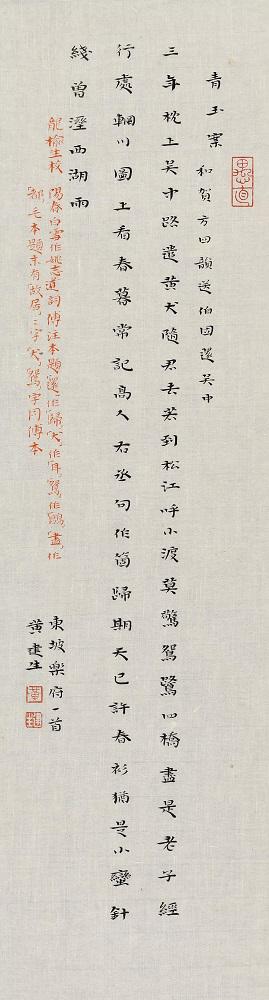 青玉案
和賀方回韻送伯固還吳中
三年枕上吳中路遣黃犬隨君去若到松江呼小渡莫驚鴛鷺四橋盡是老子經
行處輞川圖上看春暮常記高人右丞句作箇歸期天已許春衫猶是小蠻針
綫曾溼西湖雨
龍榆生校 陽春白雪作姚志道詞傅注本題還作歸犬作耳鴛作鷗盡作
鄉毛本題末有故居二字犬鴛字同傅本
東坡樂府一首
黃建生
思直
黃